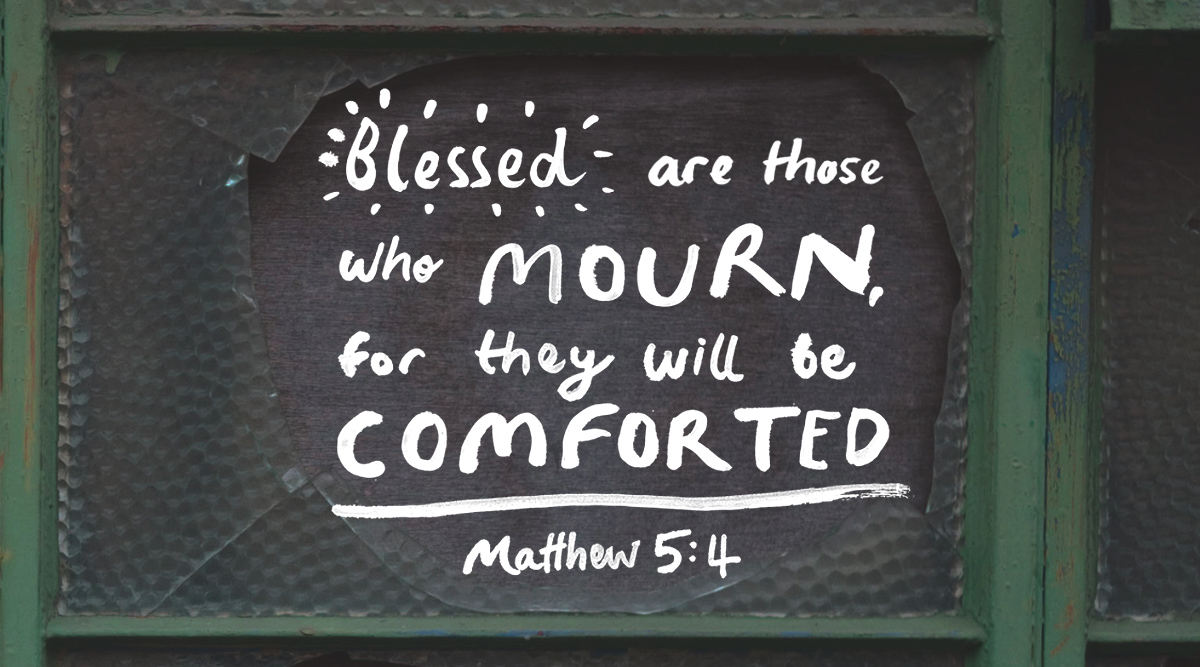 Blessed are those
who MOURN,
for they will be
COMFORTED
Matthew 5:4